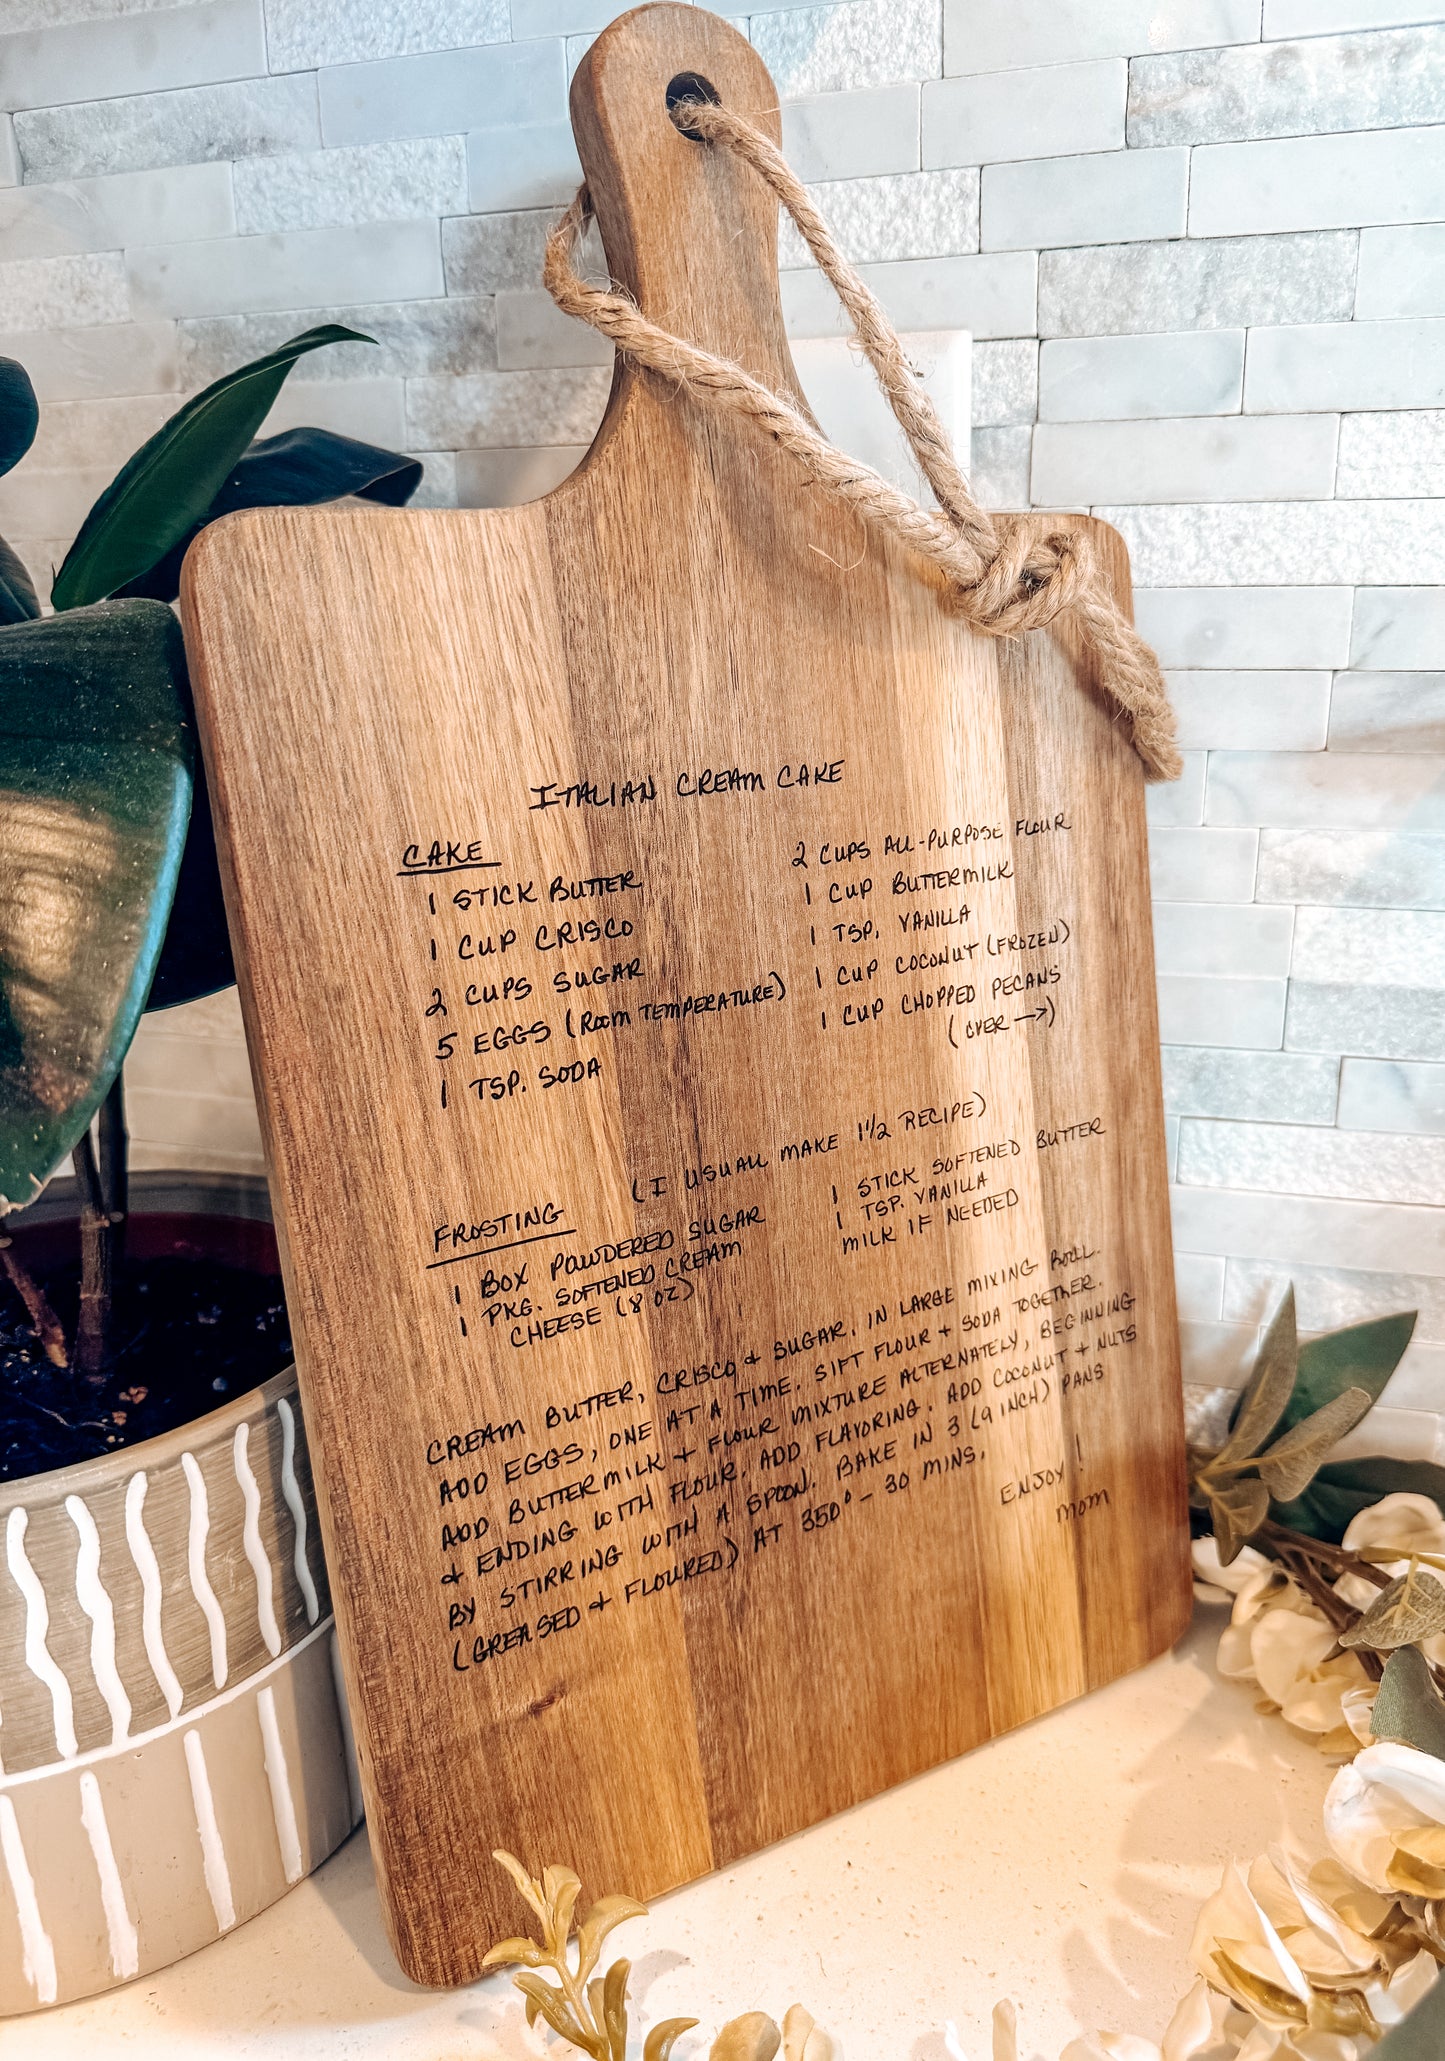 ITALIAN CREAM CAKE
CAKE
1 STICK BUTTER
1 CUP CRISCO
2 CUPS SUGAR
5 EGGS (ROOM TEMPERATURE)
1 TSP. SODA
2 CUPS ALL-PURPOSE FLOUR
1 CUP BUTTERMILK
1 TSP. VANILLA
1 CUP COCONUT (FROZEN)
1 CUP CHOPPED PECANS
(OVER →)
(I USUALL MAKE 1 1/2 RECIPE)
FROSTING
1 BOX POWDERED SUGAR
1 PKG. SOFTENED CREAM
CHEESE (8 OZ)
1 STICK SOFTENED BUTTER
1 TSP. VANILLA
MILK IF NEEDED
CREAM BUTTER, CRISCO & SUGAR, IN LARGE MIXING BOWL.
ADD EGGS, ONE AT A TIME. SIFT FLOUR + SODA TOGETHER.
ADD BUTTERMILK + FLOUR MIXTURE ALTERNATELY, BEGINNING
& ENDING WITH FLOUR. ADD FLAVORING. ADD COCONUT + NUTS
BY STIRRING WITH A SPOON. BAKE IN 3 (9 INCH) PANS
(GREASED & FLOURED) AT 350° - 30 MINS.
ENJOY!
MOM